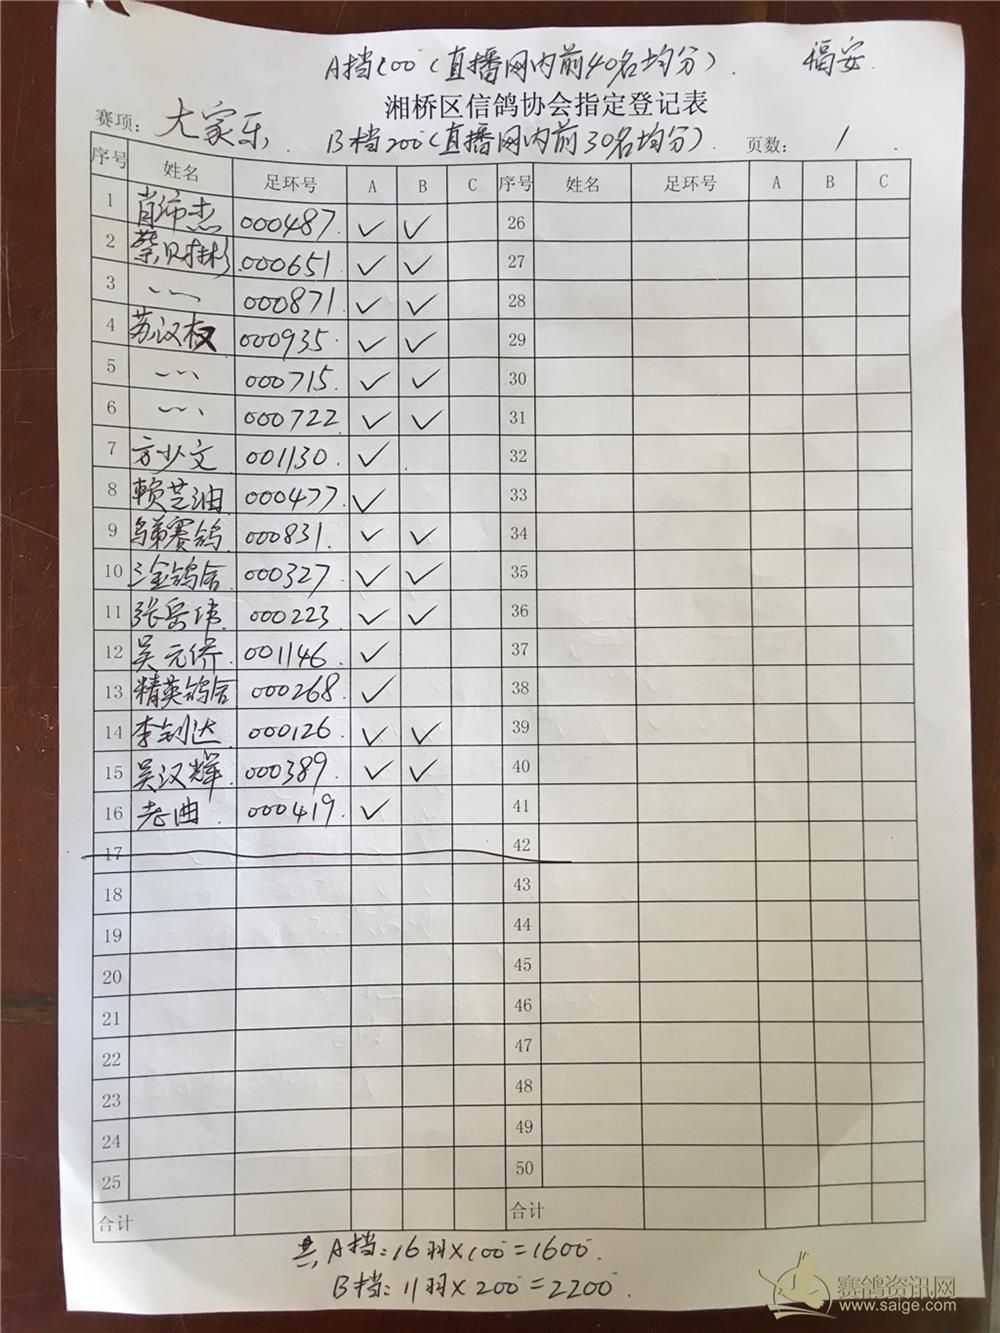 A挡100（直播网内前40名均分）. 福安.
湘桥区信鸽协会指定登记表
赛项： 大家乐. B挡200（直播网内前30名均分） 页数： 1 .
序号 姓名 足环号 A B C 序号 姓名 足环号 A B C
1 肖沛杰 000487. ✓ ✓ 26
2 蔡财彬 000651 ✓ ✓ 27
3 000871 ✓ ✓ 28
4 苏汉权 000935 ✓ ✓ 29
5 000715. ✓ ✓ 30
6 000722 ✓ ✓ 31
7 方少文 001130. ✓ 32
8 赖芝油 000477 ✓ 33
9 赛鸽. 000831. ✓ ✓ 34
10 三金鸽舍 000327 ✓ ✓ 35
11 张岳伟. 000223 ✓ ✓ 36
12 吴元侨. 001146. ✓ 37
13 精英鸽舍 000268. ✓ 38
14 李钊达 000126 ✓ ✓ 39
15 吴汉辉. 000389. ✓ ✓ 40
16 老曲. 000419. ✓ 41
17 42
18 43
19 44
20 45
21 46
22 47
23 48
24 49
25 50
合计 合计
共A挡：16羽×100=1600.
B挡：11羽×200=2200.
赛鸽资讯网
www.saige.com